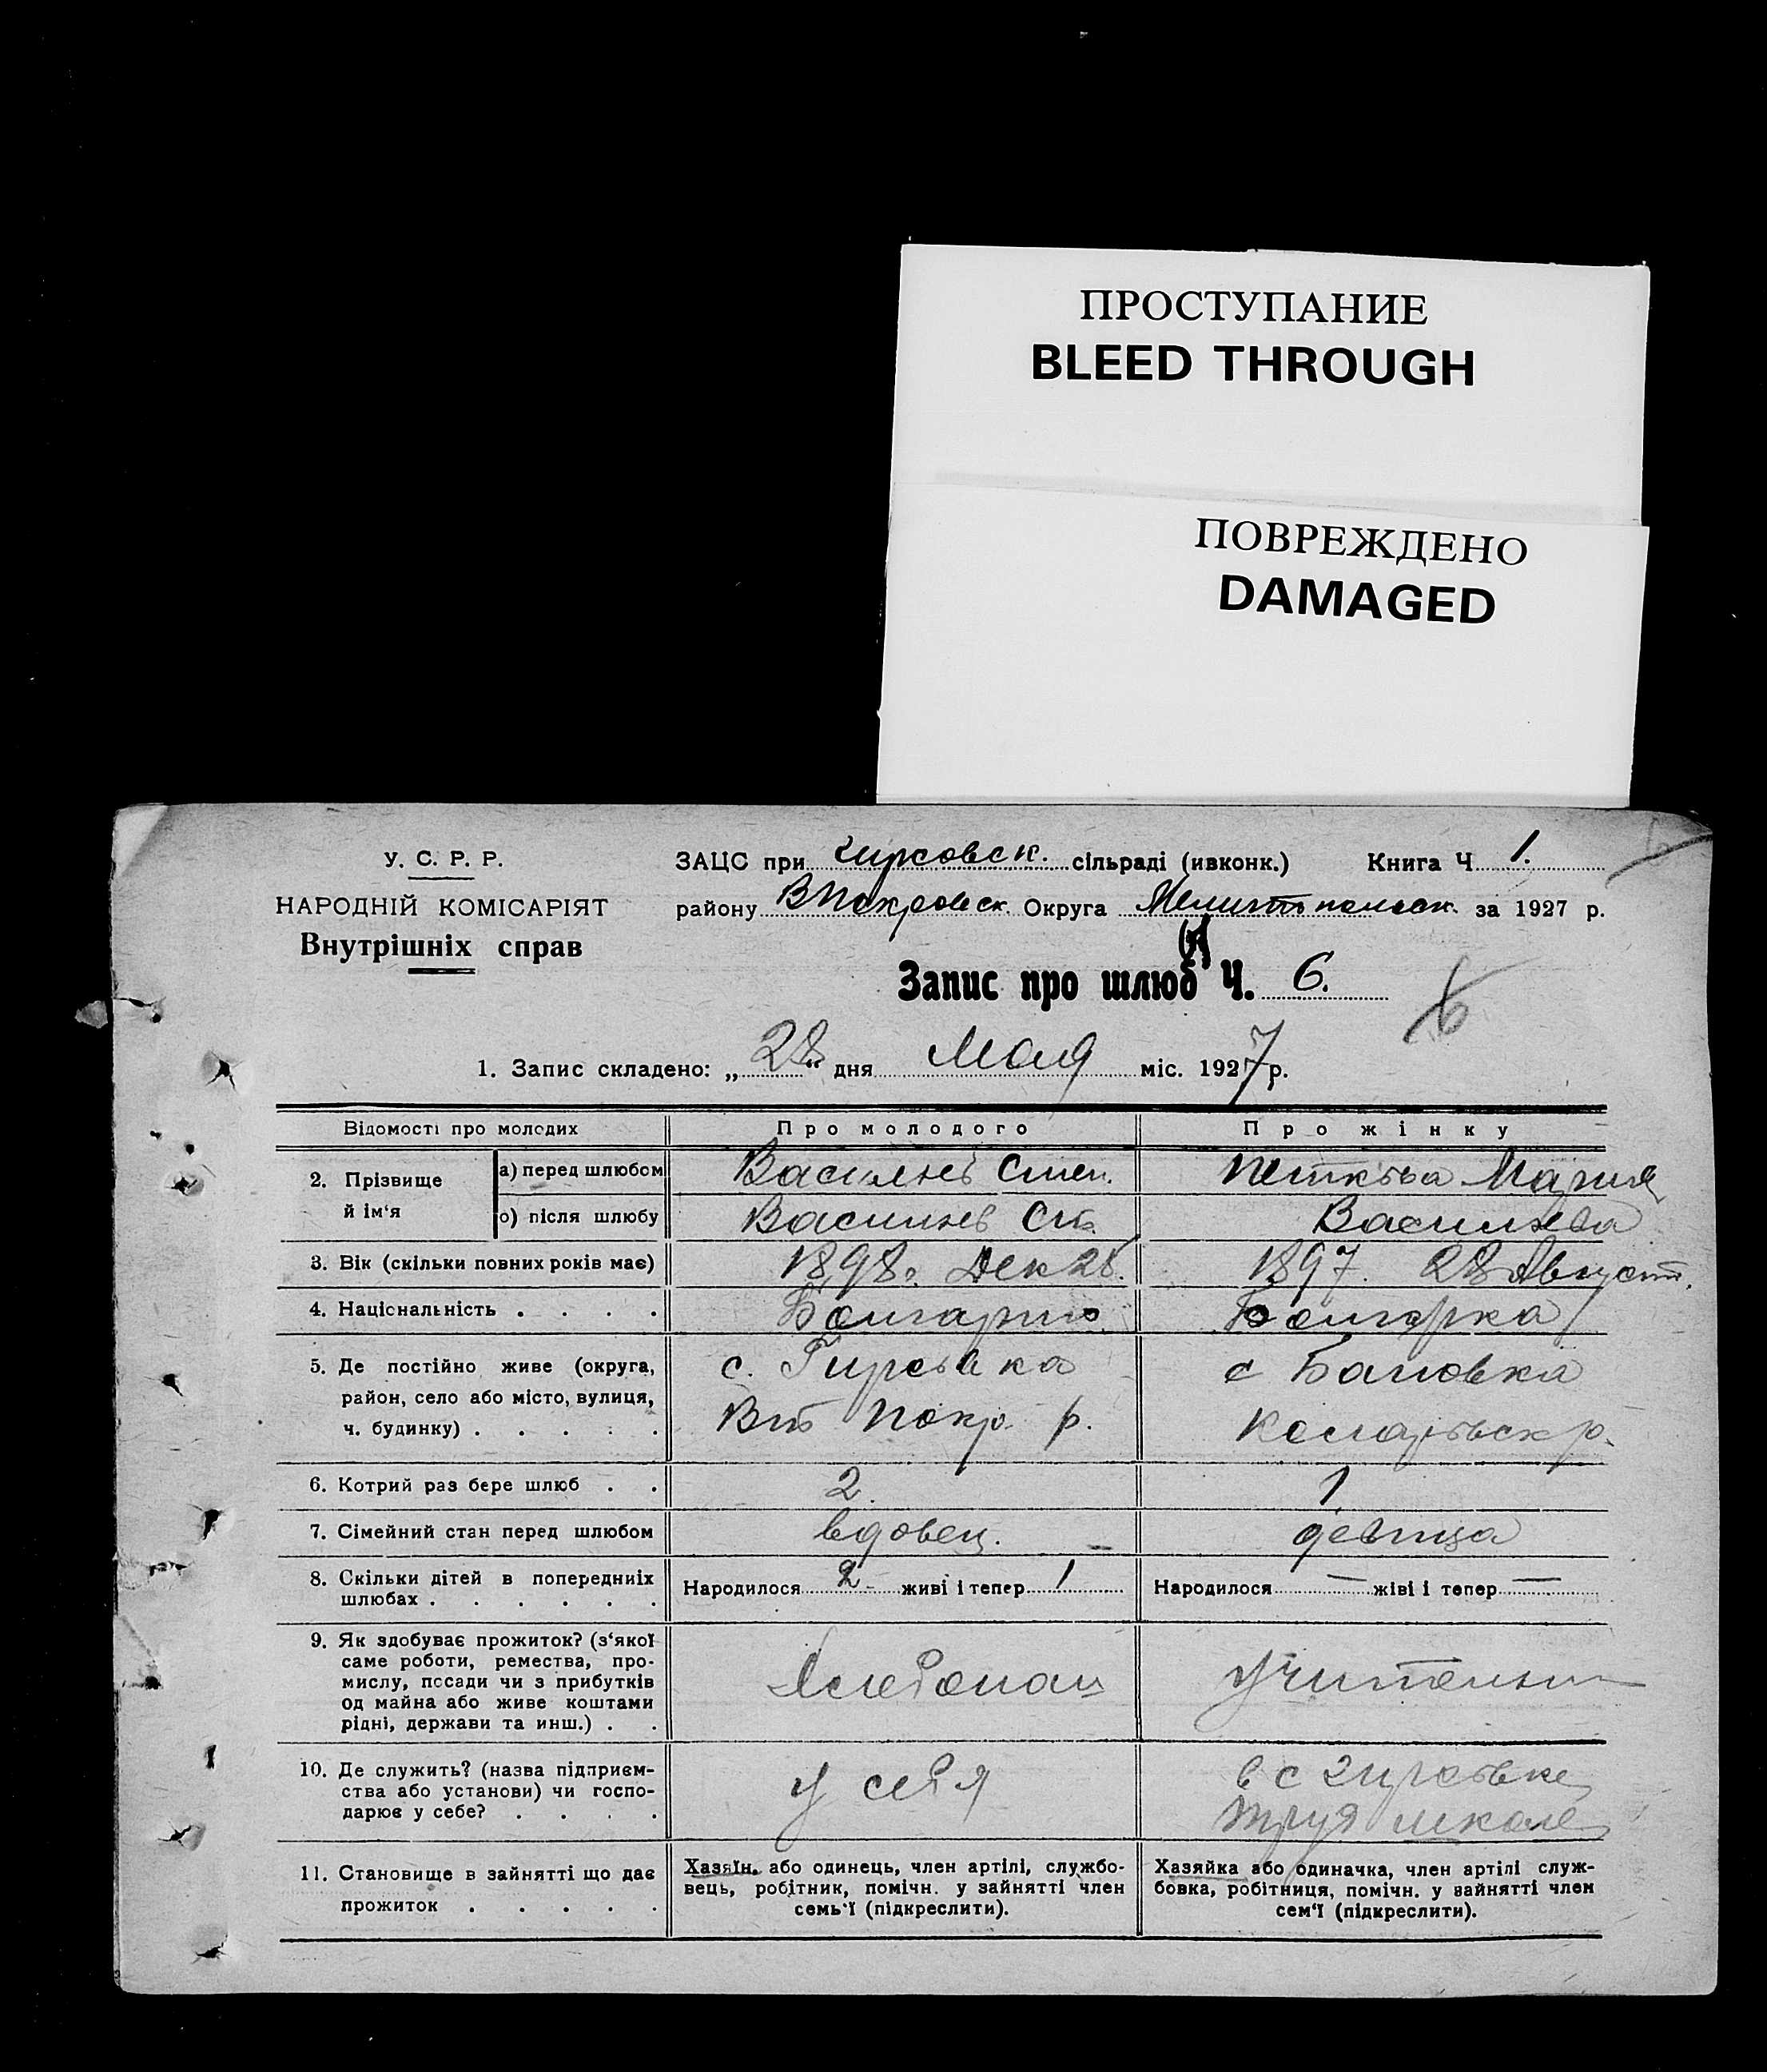 ПРОСТУПАНИЕ
BLEED THROUGH
ПОВРЕЖДЕНО
DAMAGED
У. С. Р. Р.
НАРОДНІЙ КОМІСАРІЯТ
Внутрішніх справ
ЗАЦС при гирсовск. сільраді (ивконк.) Книга Ч 1.
району ВПокровск. Округа Мелитопольск. за 1927 р.
Запис про шлюб Ч. 6.
6
1. Запис складено: „28“ дня Мая міс. 1927 р.
Відомості про молодих Про молодого Про жінку
2. Прізвище й ім‘я
а) перед шлюбом Василев Степ. Петкова Мария
о) після шлюбу Василев Ст. Василева
3. Вік (скільки повних років має) 1898г. Дек 28. 1897. 28 Август.
4. Національність . . . . Болгарин Болгарка
5. Де постійно живе (округа, с. Гирсовка с Бановка
район, село або місто, вулиця, Вт Покр. р.
ч. будинку) . . . . .
6. Котрий раз бере шлюб . . 2. 1
7. Сімейний стан перед шлюбом вдовец. девица
8. Скільки дітей в попередниіх Народилося 2 живі і тепер 1 Народилося — жіві і тепер —
шлюбах . . . . . .
9. Як здобуває прожиток? (з‘якої
саме роботи, ремества, про-
мислу, посади чи з прибутків Хлебопаш Учительн
од майна або живе коштами
рідні, держави та инш.) . .
10. Де служить? (назва підприєм- у себя в с гирсовке
ства або установи) чи госпо- труд школе
дарює у себе? . . . .
11. Становище в зайнятті що дає
прожиток . . . . .
Хазяїн, або одинець, член артілі, службо-
вець, робітник, помічн. у зайнятті член
семь‘ї (підкреслити).
Хазяйка або одиначка, член артілі служ-
бовка, робітниця, помічн. у зайнятті член
сем‘ї (підкреслити).